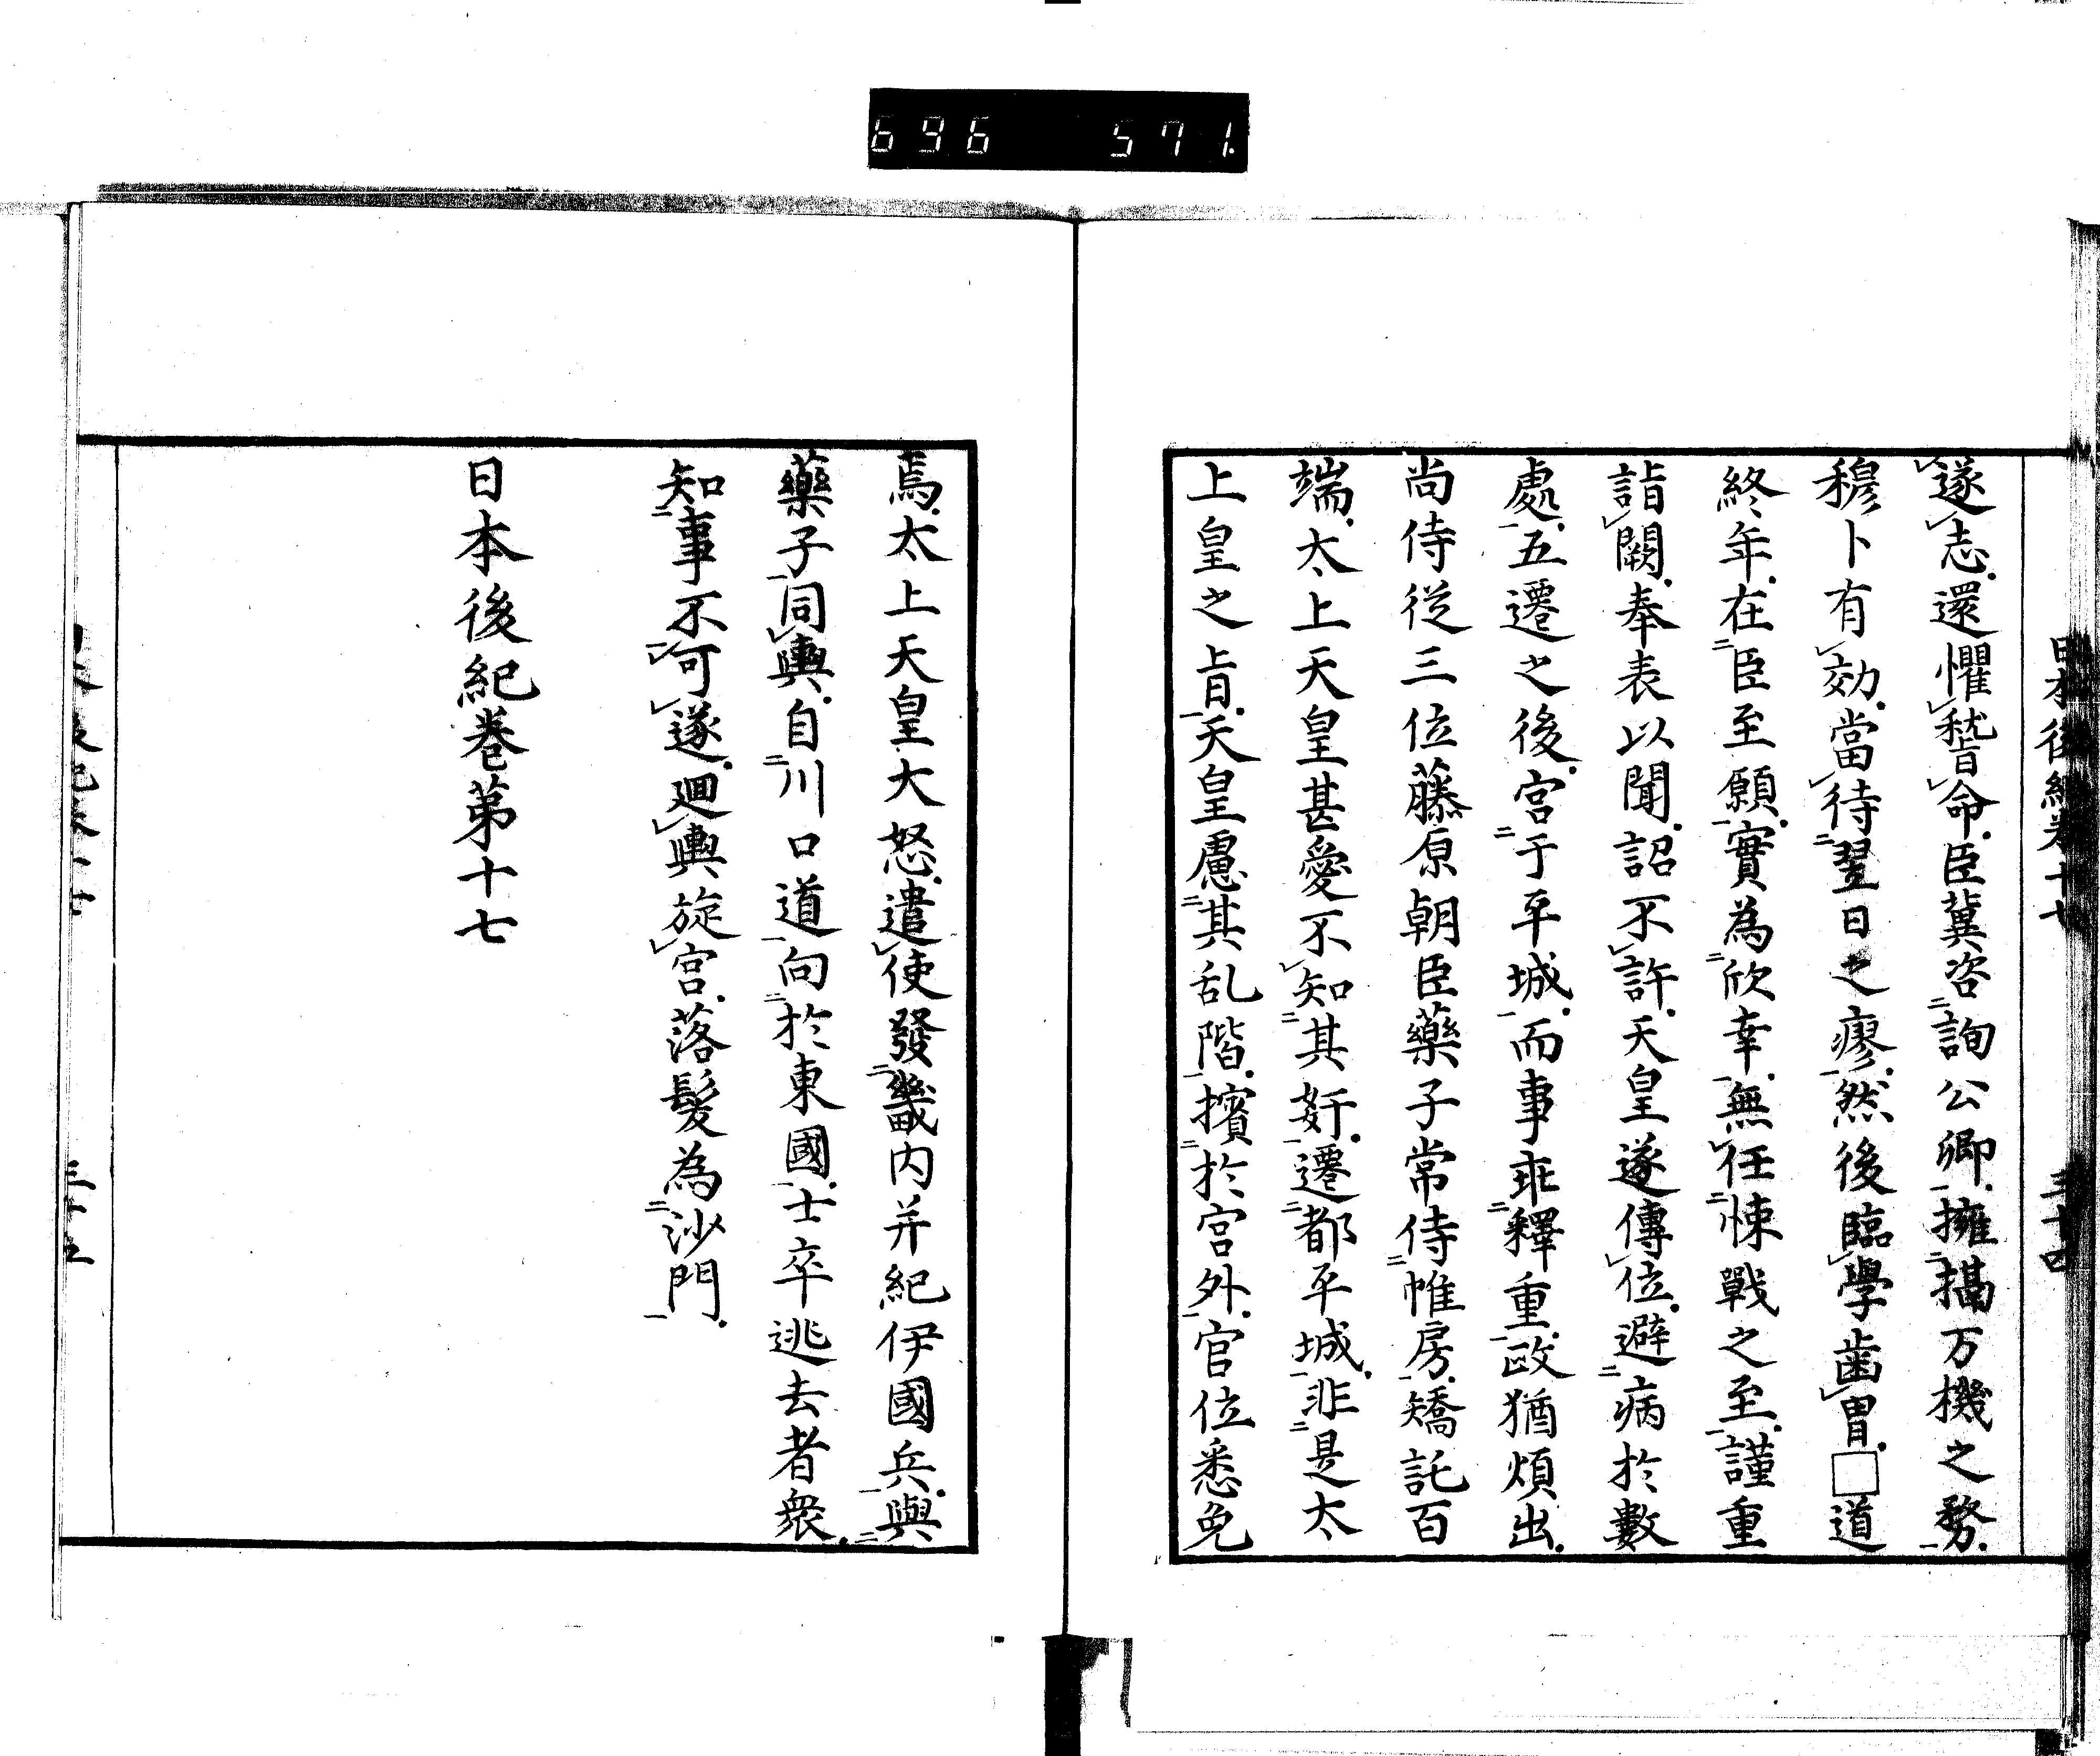 696 571
日本後紀卷十七 三十四
遂志還懼嵆旨命臣冀咨詢公卿擁搨万機之務
穆卜有効當待翌日之瘳然後臨學齒冑□道
終年在臣至願實為欣幸無任悚戰之至謹重
詣闕奉表以聞詔不許天皇遂傳位避病於數
處五遷之後宮于平城而事乖釋重政猶煩出
尚侍從三位藤原朝臣藥子常侍帷房矯託百
端太上天皇甚愛不知其姧遷都平城非是太
上皇之旨天皇慮其乱階擯於宮外官位悉免
焉太上天皇大怒遣使發畿内并紀伊國兵與
藥子同輿自川口道向於東國士卒逃去者衆
知事不可遂廻輿旋宮落髮為沙門
日本後紀卷第十七